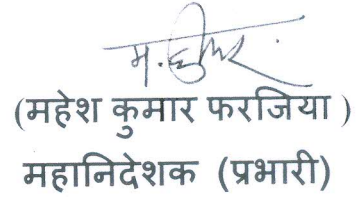 म. कुमार
(महेश कुमार फरजिया )
महानिदेशक (प्रभारी)